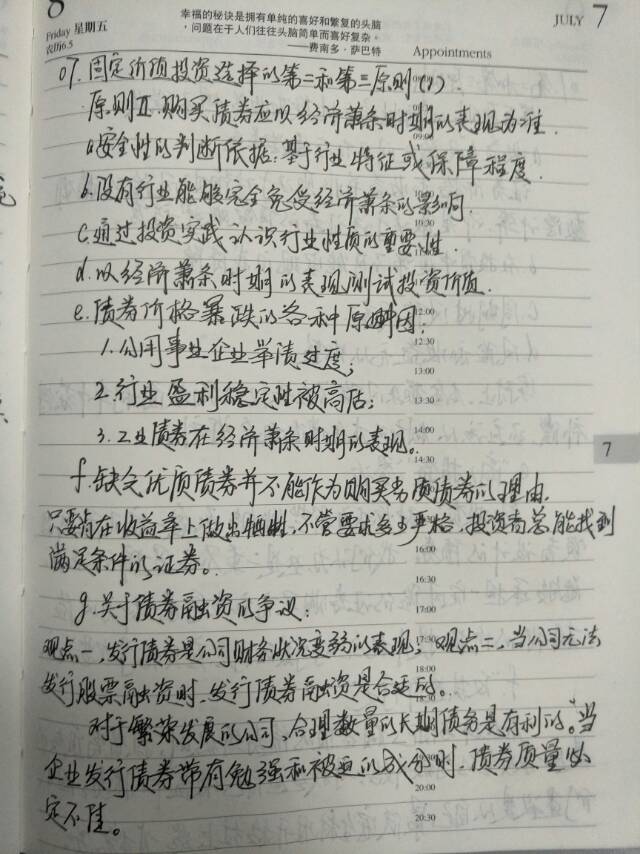 8
Friday 星期五
农历6.5
幸福的秘诀是拥有单纯的喜好和繁复的头脑
,问题在于人们往往头脑简单而喜好复杂。
——费南多·萨巴特
Appointments
JULY 7
07.固定价值投资选择的第二和第三原则(1).
原则Ⅱ.购买债券应以经济萧条时期的表现为准.
a安全性的判断依据:基于行业特征或保障程度.
b.没有行业能够完全免受经济萧条的影响.
c.通过投资实践认识行业性质的重要性.
d.以经济萧条时期的表现测试投资价值.
e.债券价格暴跌的各种原因:
1.公用事业企业举债过度;
2.行业盈利稳定性被高估;
3.工业债券在经济萧条时期的表现。
f.缺乏优质债券并不能作为购买劣质债券的理由.
只要肯在收益率上做出牺牲,不管要求多么严格,投资者总能找到
满足条件的证券。
g.关于债券融资的争议:
观点一,发行债券是公司财务状况变弱的表现;观点二,当公司无法
发行股票融资时,发行债券融资是合适的。
对于繁荣发展的公司,合理数量的长期债务是有利的。当
企业发行债券带有勉强和被迫的成分时,债券质量必
定不佳。
09:00
10:30
12:00
12:30
13:00
13:30
14:00
14:30
16:00
16:30
17:00
17:30
18:00
20:00
20:30
7